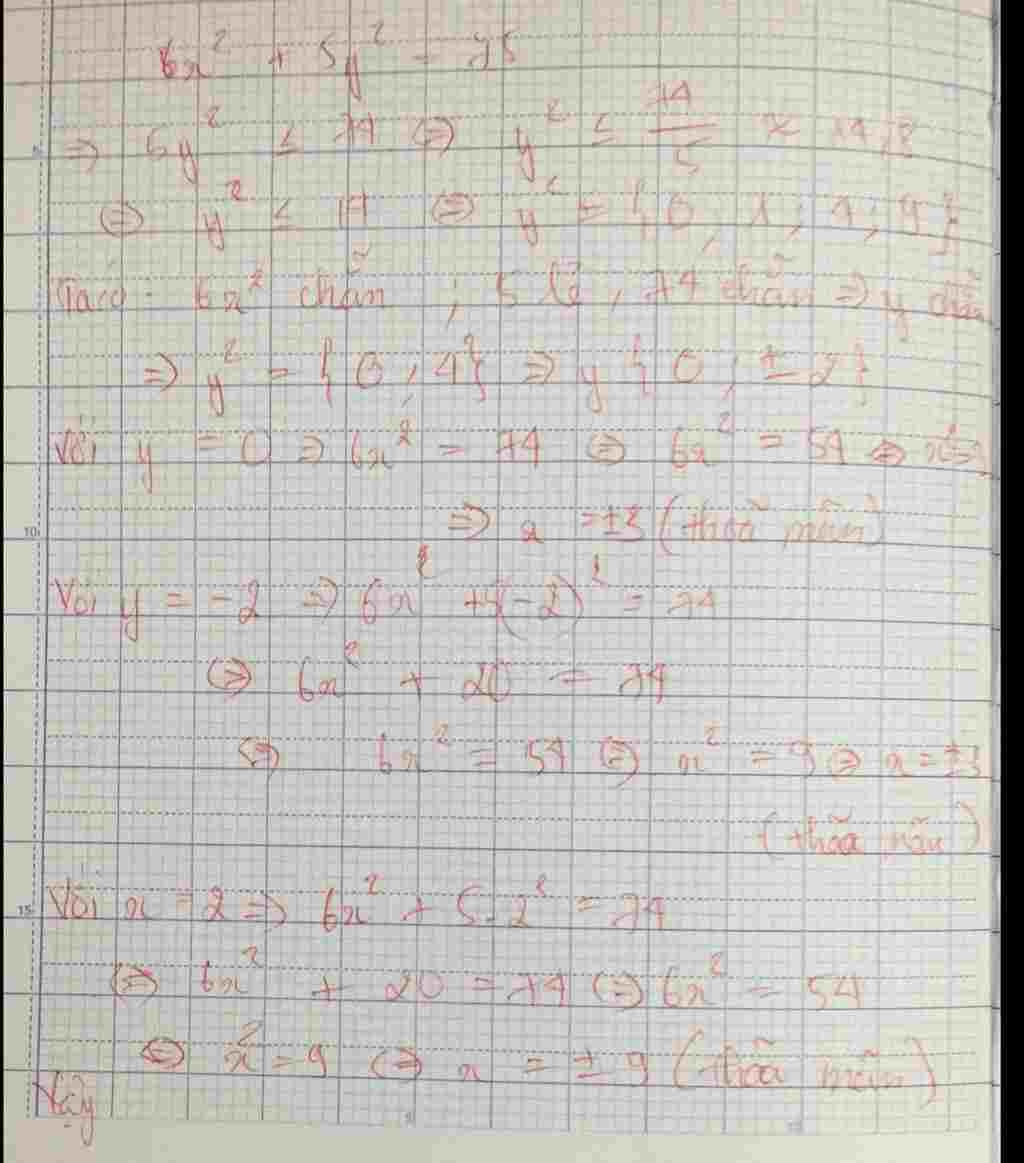 6x² + 5y² = 75
⇒ 5y² ≤ 74 ⇔ y² ≤ 74/5 ≈ 14,8
⇔ y² ≤ 14 ⇔ y² = {0, 1; 4; 9}
Ta có: 6x² chẵn ; 5 lẽ, 74 chẵn ⇒ y chẵn
⇒ y² = {0; 4} ⇒ y {0; ±2}
Với y = 0 ⇒ 6x² = 74 ⇔ 6x² = 54 ⇔
⇒ x = ±3 (thoả mãn)
Với y = -2 ⇒ 6x² + 5(-2)² = 74
⇔ 6x² + 20 = 74
⇔ 6x² = 54 ⇔ x² = 9 ⇔ x = ±3
(thõa mãn)
Với x = 2 ⇒ 6x² + 5.2² = 74
⇔ 6x² + 20 = 74 ⇔ 6x² = 54
⇔ x² = 9 ⇔ x = ±9 (thõa mãn)
Vậy